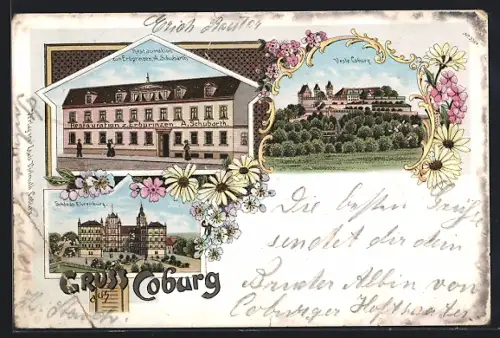 Erich Reuter
Restauration
zum Erbprinzen, A. Schubarth
Restauration z. Erbprinzen A. Schubarth
Veste Coburg
Schloss Ehrenburg
GRUSS
AUS
Coburg
Die besten Grüße
sendet dir dein
Bruder Albin vom
Coburger Hoftheater